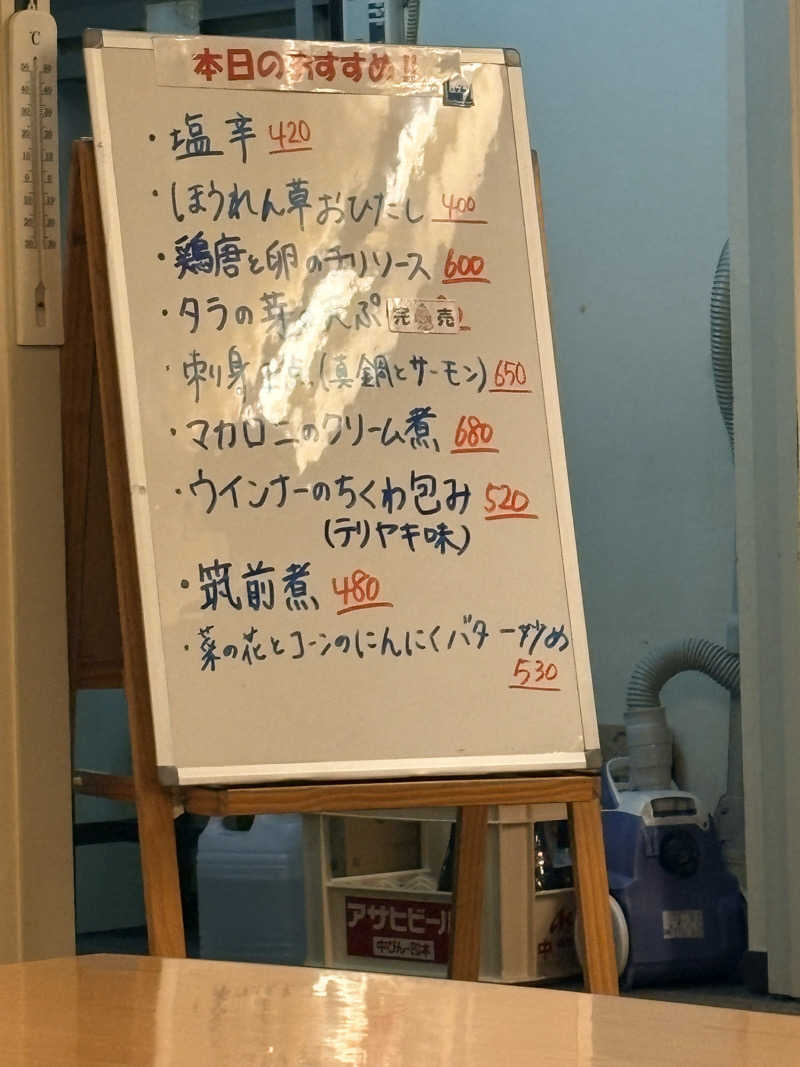 本日のおすすめ!!
・塩辛 420
・ほうれん草おひたし 400
・鶏唐と卵のチリソース 600
・タラの芽の天ぷ 完売
・刺身 点(真鯛とサーモン) 650
・マカロニのクリーム煮 680
・ウインナーのちくわ包み 520
(テリヤキ味)
・筑前煮 480
・菜の花とコーンのにんにくバター炒め
530
℃
アサヒビール
中びん・20本